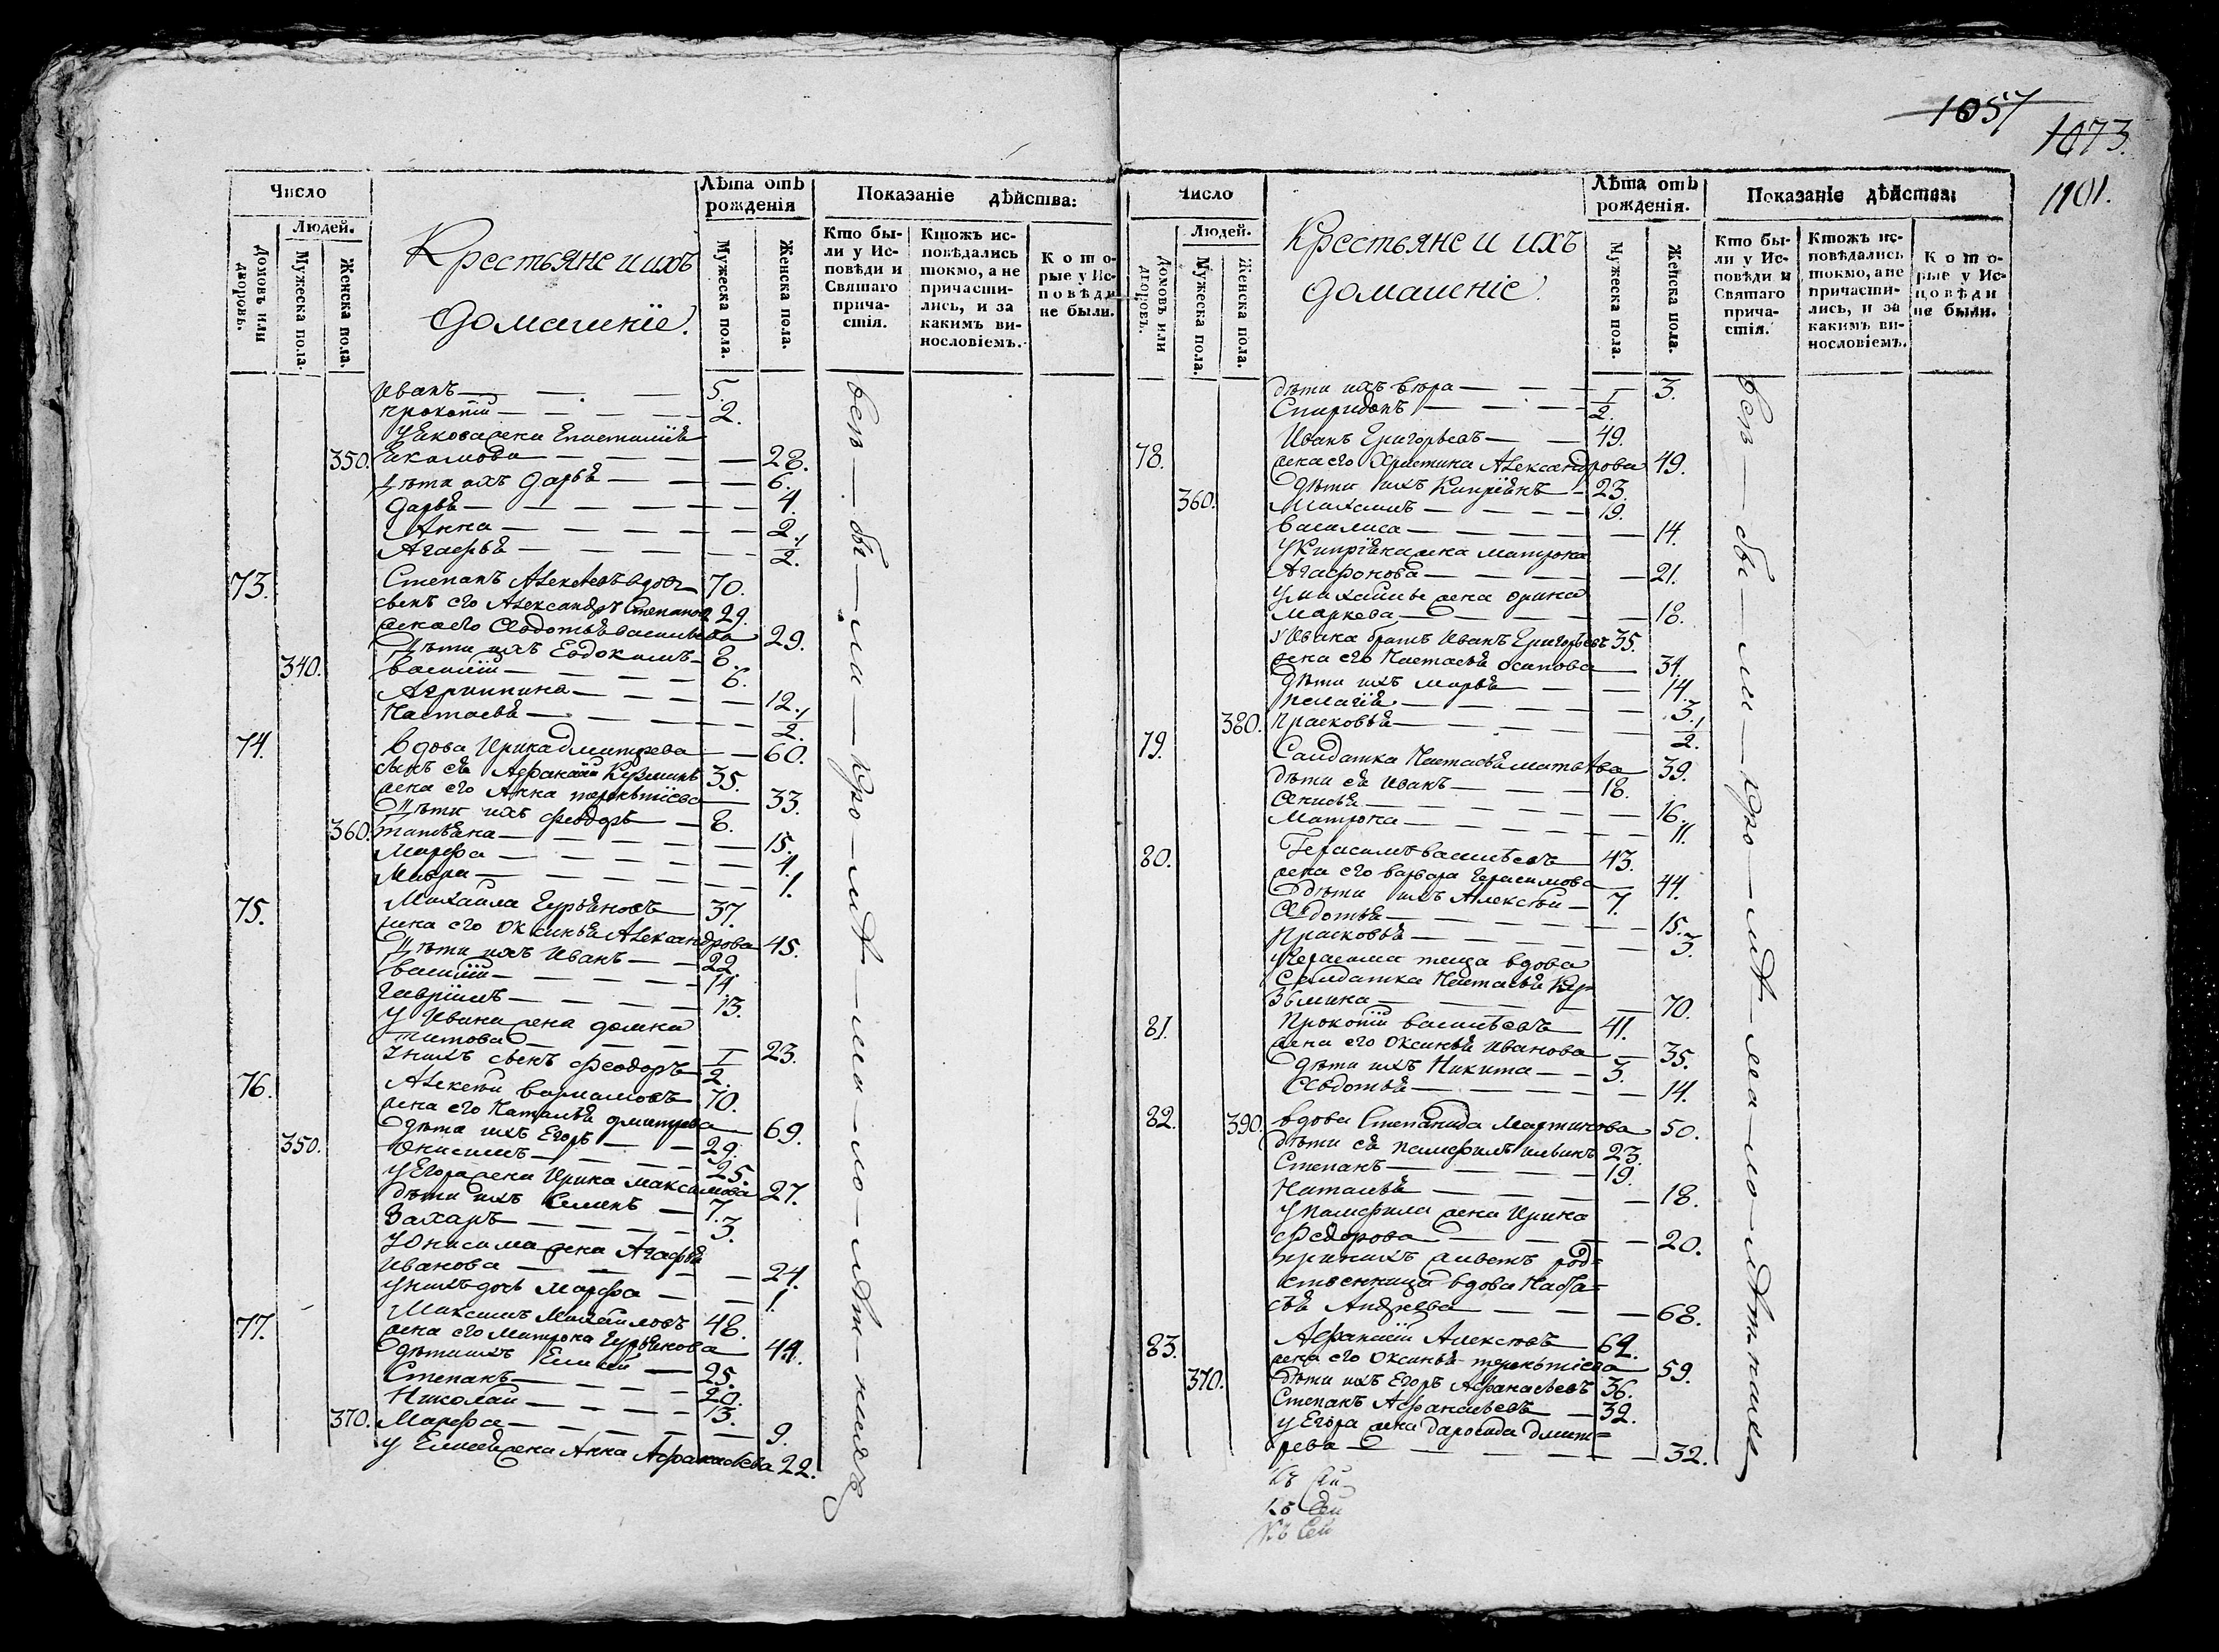 1057
1073.
1101.
Число
Людей.
Домовъ или дворовъ.
Мужеска пола.
Женска пола.
Крестьяне и ихъ
домашніе.
Лѣта отъ рожденія
Мужеска пола.
Женска пола.
Показаніе дѣйства:
Кто были у Исповѣди и Святаго причастія.
Ктожъ исповѣдались токмо, а не причастились, и за какимъ винословіемъ.
Которые у Исповѣди не были.
Иванъ 5.
Прокопій 2.
у Якова жена
350. 28.
Дѣти ихъ Дарья 6.
Дарья 4.
Анна 2.
Агафья 1/2.
73. Степанъ Алексѣевъ вдовъ 70.
сынъ его Александръ Степановъ 29.
жена его Авдотья Васильева 29.
Дѣти ихъ Евдокимъ 8.
340. Василій 6.
Агриппина 12.
Настасья 1/2.
74. Вдова Ирина Дмитрева 60.
сынъ ея Афанасій Кузминъ 35.
жена его Анна Терентіева 33.
Дѣти ихъ Феодоръ 8.
360. Татьяна 15.
Марфа 4.
Мавра 1.
75. Михаила Гурьяновъ 37.
жена его Оксинья Александрова 45.
Дѣти ихъ Иванъ 22.
Василій 14.
Гаврiилъ 13.
у Ивана жена Домна
Титова 23.
У нихъ сынъ Феодоръ 1/2.
76. Алексѣй Варламовъ 70.
жена его Наталья Дмитрева 69.
Дѣти ихъ Егоръ 29.
350. Онисимъ 25.
у Егора жена Ирина Максимова 27.
Дѣти ихъ Семенъ 7.
Захаръ 3.
У Онисима жена Агафья
Иванова 24.
у нихъ дочь Марфа 1.
77. Максимъ Михайловъ 48.
жена его Матрона Гурьянова 44.
Дѣти ихъ Елисей 25.
Степанъ 20.
Николай 13.
370. Марфа 9.
у Елисея жена Анна Афанасьева 22.
всѣ — бы — ли
Число
Людей.
Домовъ или дворовъ.
Мужеска пола.
Женска пола.
Крестьяне и ихъ
домашніе.
Лѣта отъ рожденія.
Мужеска пола.
Женска пола.
Показаніе дѣйства:
Кто были у Исповѣди и Святаго причастія.
Ктожъ исповѣдались токмо, а не причастились, и за какимъ винословіемъ.
Которые у Исповѣди не были.
Дѣти ихъ 3.
Спиридонъ 1/2.
78. Иванъ Григорьевъ 49.
жена его Христина Александрова 49.
Дѣти ихъ Кипріянъ 23.
360. Михаилъ 19.
Василиса 14.
у Кипріяна жена Матрона
Агафонова 21.
у Михайлы жена Орина
Маркова 18.
у Ивана братъ Иванъ Григорьевъ 35.
жена его Настасья Осипова 34.
Дѣти ихъ Марья 14.
Пелагія 3.
380. Прасковья 1/2.
79. Салдатка Настасья Матвѣева 39.
Дѣти ея Иванъ 18.
16.
Матрона 11.
80. Герасимъ Васильевъ 43.
жена его Варвара Герасимова 44.
Дѣти ихъ Алексѣй 7.
Авдотья 15.
Прасковья 3.
у Герасима теща вдова
Салдатка Настасья Ку
зьмина 70.
81. Прокопій Васильевъ 41.
жена его Оксинья Иванова 35.
Дѣти ихъ Никита 3.
Авдотья 14.
82. 390. Вдова Степанида Мартинова 50.
Дѣти ея Памфилъ 23.
Степанъ 19.
Наталья 18.
у Памфила жена Ирина
Федорова 20.
при нихъ живетъ род=
ственница вдова Наста=
сья Андреева 68.
83. Афанасій Алексѣевъ 62.
жена его Оксинья Терентіева 59.
370. Дѣти ихъ Егоръ Афанасьевъ 36.
Степанъ Афанасьевъ 32.
у Егора жена Дарофида Дмит=
рева 32.
всѣ — бы — ли
Къ Сей
Къ Сей
Къ Сей